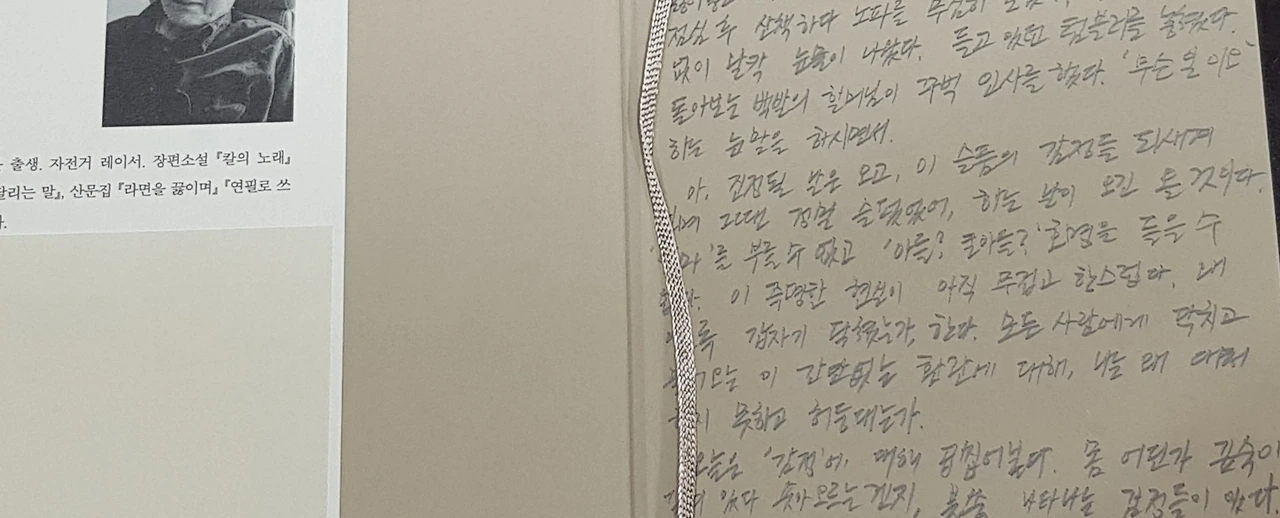 출생. 자전거 레이서. 장편소설 『칼의 노래』
달리는 말』, 산문집 『라면을 끓이며』 『연필로 쓰
점심 후 산책하다 노파를 무심히
없이 왈칵 눈물이 나왔다. 들고 있던 텀블러를 눌렀다.
돌아보는 백발의 할머님이 꾸벅 인사를 했다. '무슨 일이오'
하는 눈말을 하시면서.
아, 진정될 날은 오고, 이 슬픔의 감정들 되새겨
그땐 정말 슬펐었어, 하는 날이 오긴 올 것이다.
를 부를 수 없고 '아들? 큰아들?' 호명을 들을 수
이 족명한 현실이 아직 무겁고 한스럽다. 왜
갑자기 닥쳤는가, 한다. 모든 사람에게 닥치고
이 간단없는 환란에 대해, 나는 왜 대처
못하고 허둥대는가.
오늘은 '감정'에 대해 뒤집어본다. 몸 어딘가 깊숙이
있다 솟아오르는 겐지, 불쑥 나타나는 감정들이 있다.